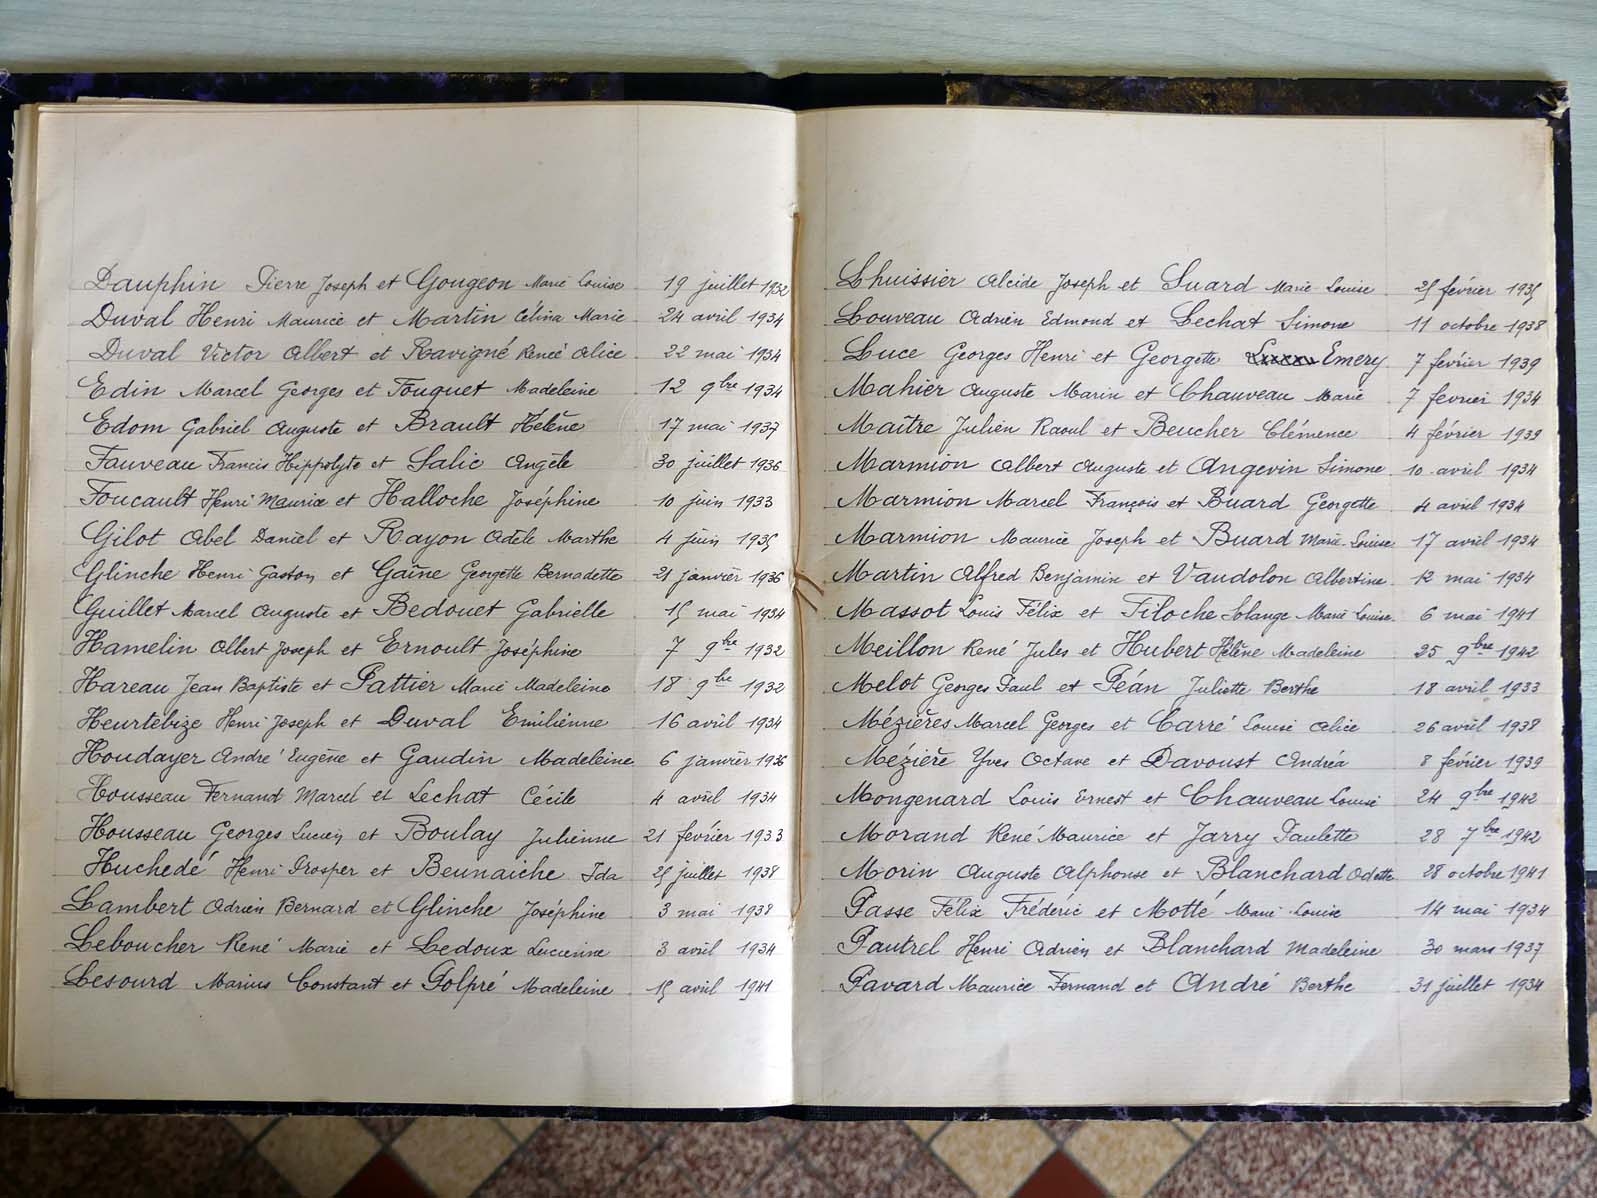 Dauphin Pierre Joseph et Gougeon Marie Louise 19 juillet 1932
Duval Henri Maurice et Martin Célina Marie 24 avril 1934
Duval Victor Albert et Ravigné Renée Alice 22 mai 1934
Edin Marcel Georges et Fouquet Madeleine 12 9bre 1934
Edom Gabriel Auguste et Brault Hélène 17 mai 1937
Fauveau Francis Hippolyte et Salic Angèle 30 juillet 1936
Foucault Henri Maurice et Halloche Joséphine 10 juin 1933
Gilot Abel Daniel et Rayon Adèle Marthe 4 juin 1935
Glinche Henri Gaston et Gaîne Georgette Bernadette 21 janvier 1936
Guillet Marcel Auguste et Bedouet Gabrielle 15 mai 1934
Hamelin Albert Joseph et Ernoult Joséphine 7 9bre 1932
Hareau Jean Baptiste et Pattier Marie Madeleine 18 9bre 1932
Heurtebize Henri Joseph et Duval Emilienne 16 avril 1934
Houdayer André Eugène et Gaudin Madeleine 6 janvier 1936
Housseau Fernand Marcel et Lechat Cécile 4 avril 1934
Housseau Georges Lucien et Boulay Julienne 21 février 1933
Huchedé Henri Prosper et Beunaiche Ida 25 juillet 1938
Lambert Adrien Bernard et Glinche Joséphine 3 mai 1938
Leboucher René Marie et Ledoux Lucienne 3 avril 1934
Lesourd Marius Constant et Folpré Madeleine 15 avril 1941
Lhuissier Alcide Joseph et Suard Marie Louise 25 février 1935
Louveau Adrien Edmond et Lechat Simone 11 octobre 1938
Luce Georges Henri et Georgette Emery 7 février 1939
Mahier Auguste Marin et Chauveau Marie 7 fevrier 1934
Maître Julien Raoul et Beucher Clémence 4 février 1939
Marmion Albert Auguste et Angevin Simone 10 avril 1934
Marmion Marcel François et Buard Georgette 4 avril 1934
Marmion Maurice Joseph et Buard Marie-Louise 17 avril 1934
Martin Alfred Benjamin et Vaudolon Albertine 12 mai 1934
Massot Louis Félix et Filoche Solange Marie Louise 6 mai 1941
Meillon René Jules et Hubert Hélène Madeleine 25 9bre 1942
Melot Georges Paul et Péan Juliette Berthe 18 avril 1933
Mézières Marcel Georges et Carré Louise Alice 26 avril 1938
Mézière Yves Octave et Davoust Andréa 8 février 1939
Mongenard Louis Ernest et Chauveau Louise 24 9bre 1942
Morand René Maurice et Jarry Paulette 28 7bre 1942
Morin Auguste Alphonse et Blanchard Odette 28 octobre 1941
Passe Félix Frédéric et Motté Marie-Louise 14 mai 1934
Pautrel Henri Adrien et Blanchard Madeleine 30 mars 1937
Pavard Maurice Fernand et André Berthe 31 juillet 1934